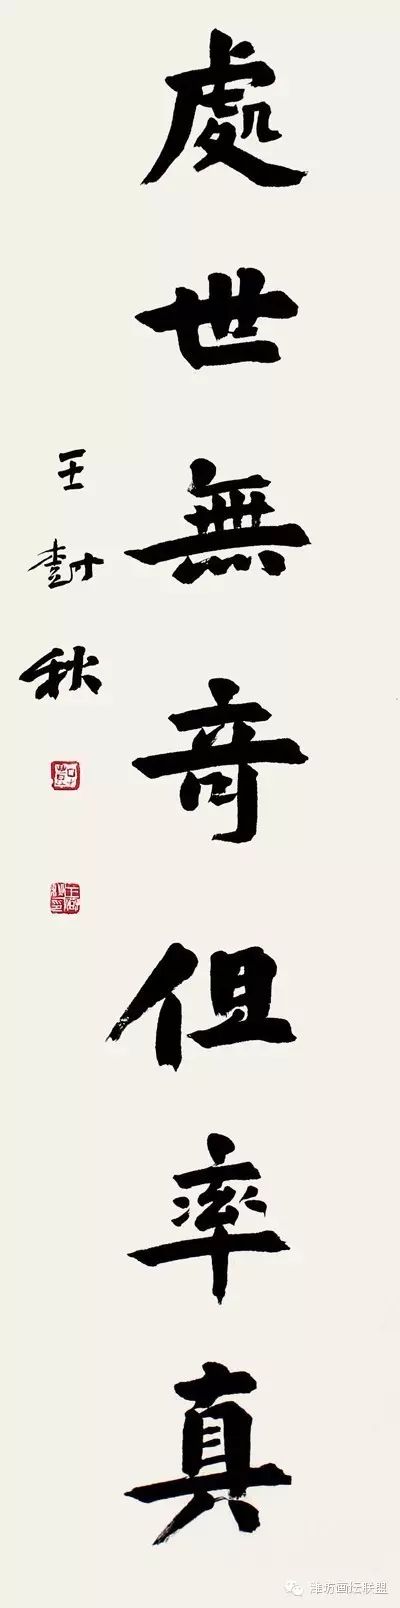 處世無奇但率真
王 秋
潍坊画坛联盟